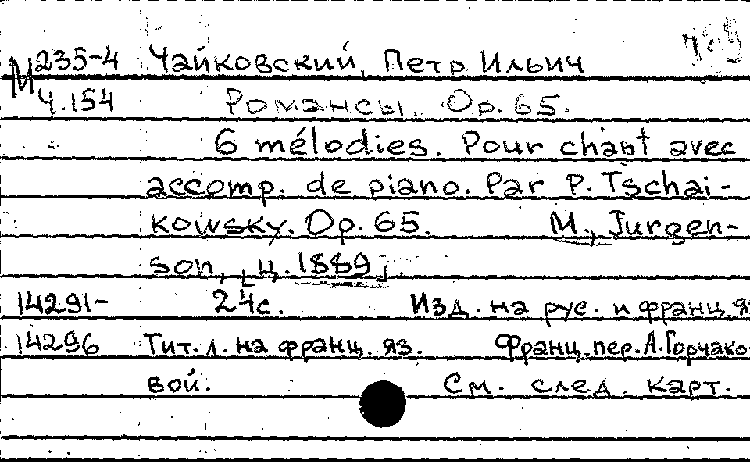 М 235-4 Чайковский, Петр Ильич
Ч.154 Романсы. Ор. 65.
6 mélodies. Pour chant avec
accomp. de piano. Par P. Tschai-
kowsky. Op. 65. M., Jurgen-
son, [ц. 1889]
14291- 24с. Изд. на рус. и франц. я
14296 Тит. л. на франц. яз. Франц. пер. А. Горчако-
вой. См. след. карт.